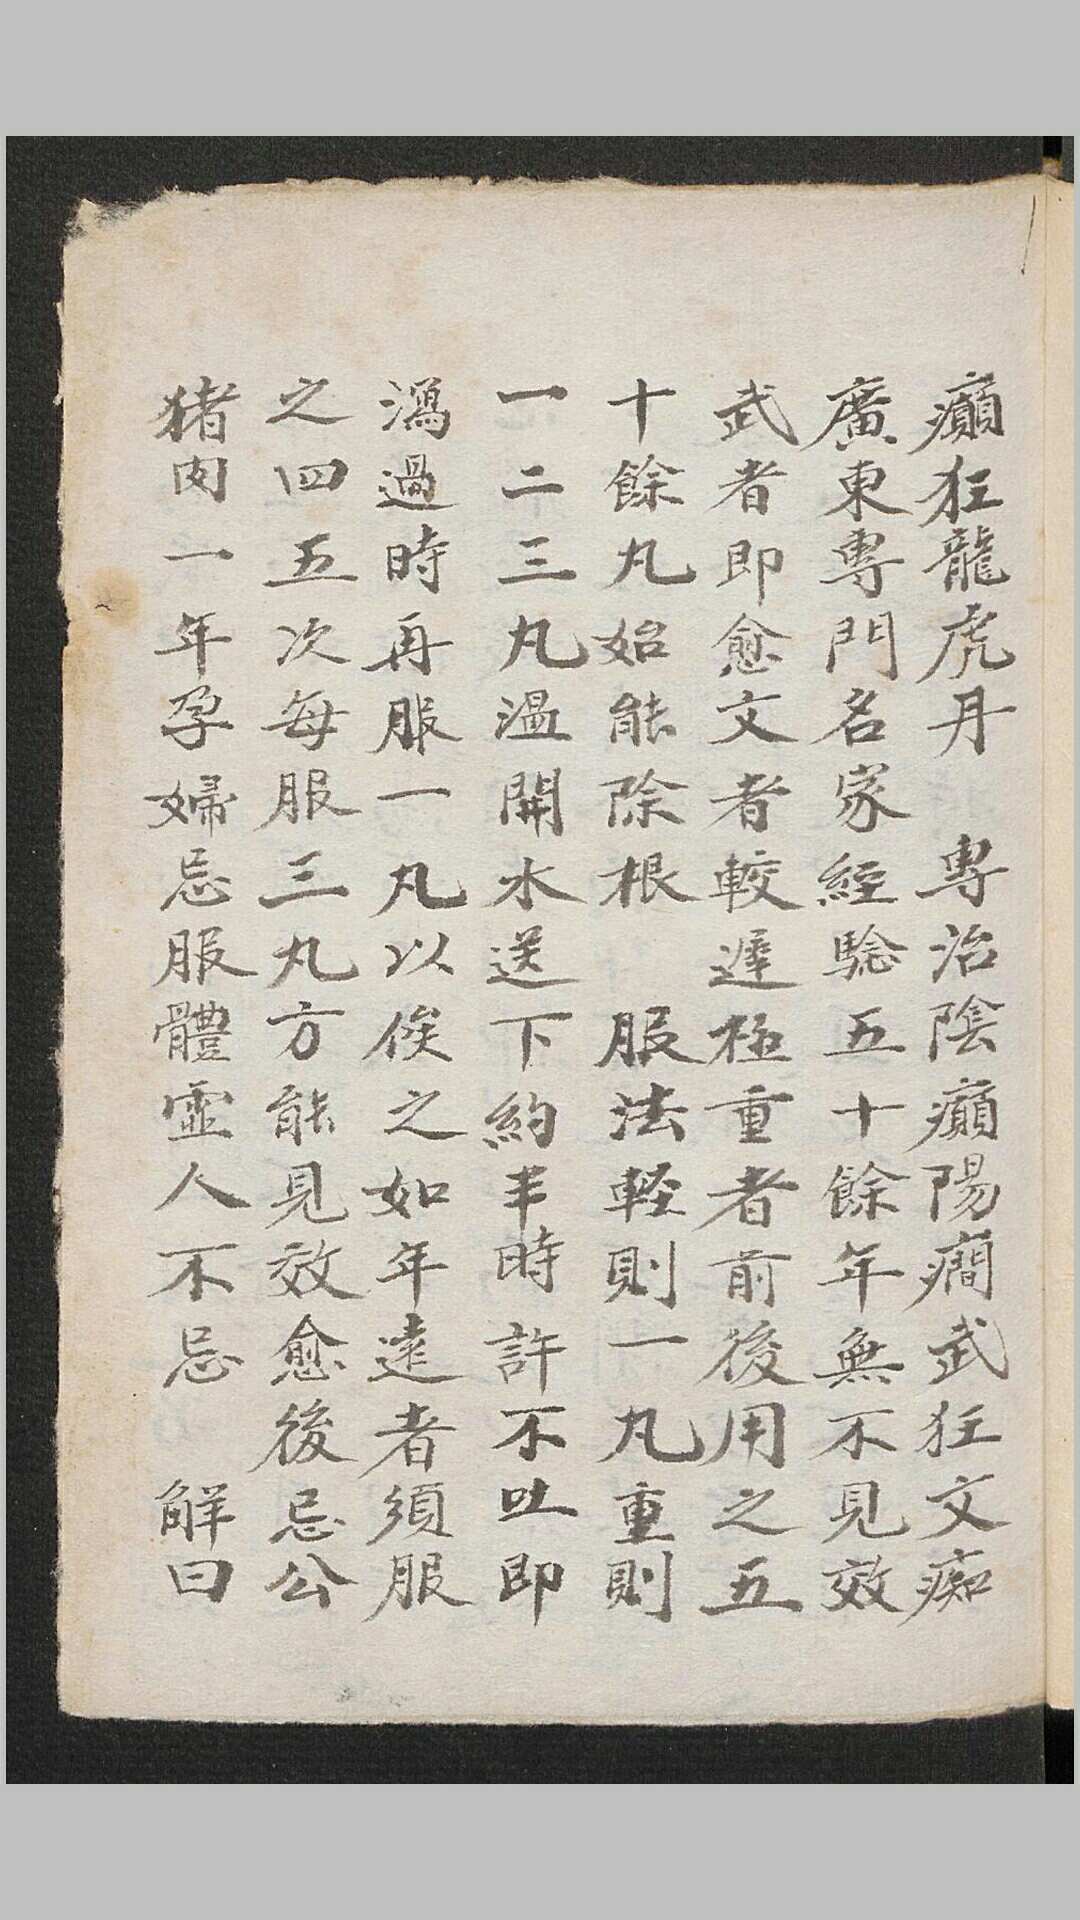 癲狂龍虎丹　專治陰癲陽癎武狂文痴
廣東專門名家經驗五十餘年無不見效
武者即愈文者較遲極重者前後用之五
十餘丸始能除根　服法輕則一丸重則
一二三丸溫開水送下約半時許不吐即
瀉過時再服一丸以俟之如年遠者須服
之四五次每服三丸方能見效愈後忌公
猪肉一年孕婦忌服體虛人不忌　解曰